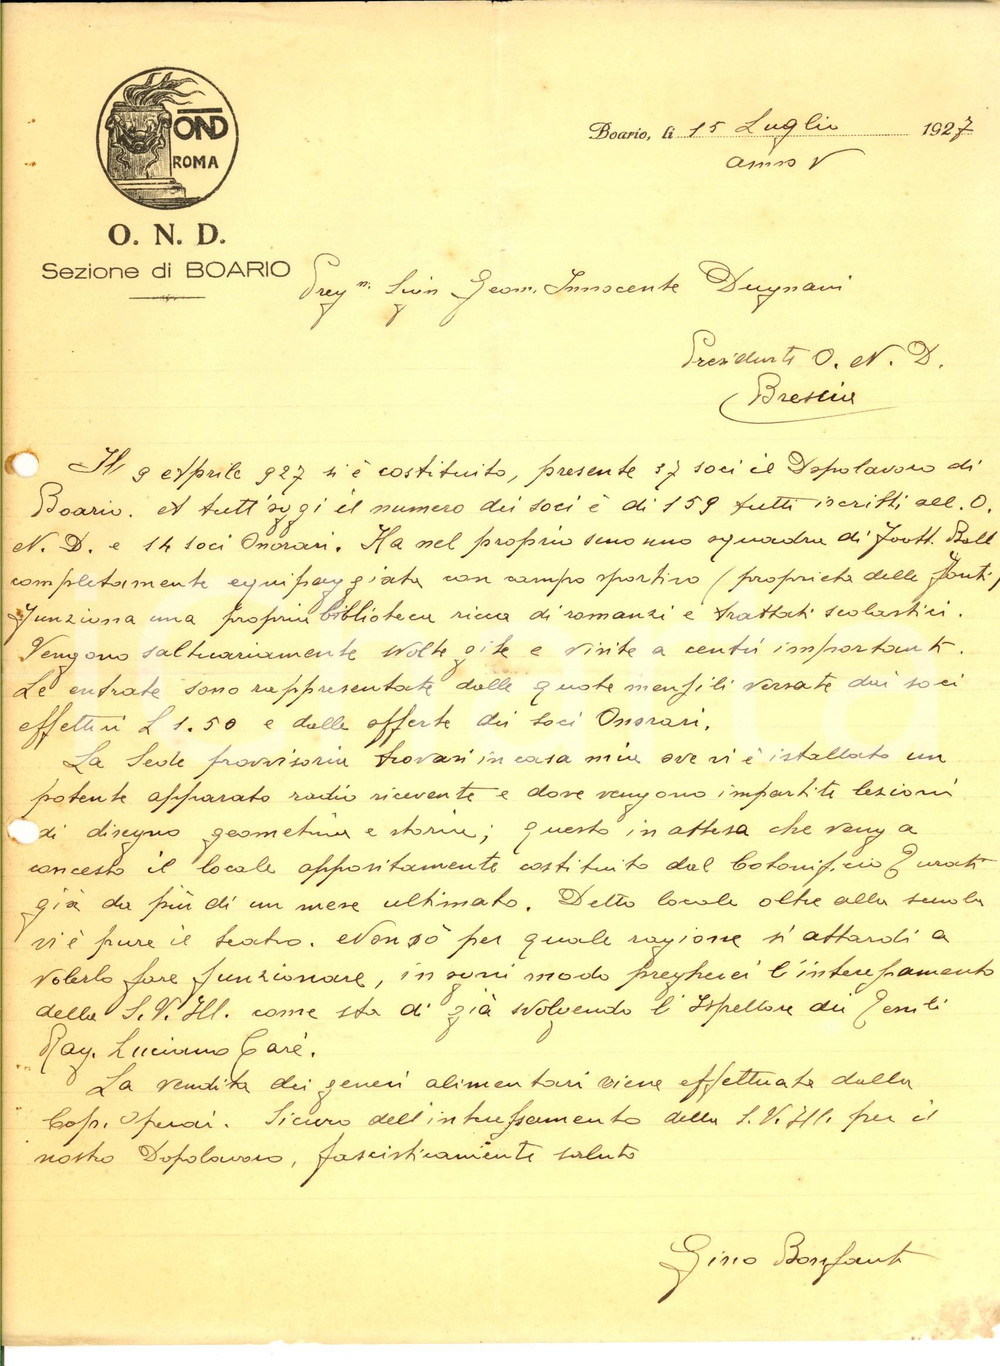 OND
ROMA
O. N. D.
Sezione di BOARIO
Boario, li 15 Luglio 1927
anno V
Preg.n. Sign Geom. Innocente Dugnani
Presidente O. N. D.
Brescia
Il 9 Aprile 927 si è costituito, presente 37 soci il Dopolavoro di
Boario. A tutt'oggi il numero dei soci è di 159 tutti iscritti all. O.
N. D. e 14 soci Onorari. Ha nel proprio seno uno squadra di Foott. Ball
completamente equipaggiata con campo sportivo (proprietà delle Fonti)
Funziona una propria biblioteca ricca di romanzi e trattati scolastici.
Vengono saltuariamente svolte gite e visite a centri importanti.
Le entrate sono rappresentate dalle quote mensili versate dai soci
effettivi £ 1.50 e dalle offerte dei soci Onorari.
La Sede provvisoria trovasi in casa mia ove vi è istallato un
potente apparato radio ricevente e dove vengono impartite lezioni
di disegno geometria e storia; questo in attesa che venga
concesso il locale appositamente costituito dal Cotonificio Turati
già da più di un mese ultimato. Detto locale oltre alla scuola
vi è pure il teatro. Non sò per quale ragione si attardi a
volerlo fare funzionare, in ogni modo pregherei l'interessamento
della S.V.Ill. come sta di già svolvendo l'Ispettore dei Tessili
Rag. Luciano Carè.
La vendita dei generi alimentari viene effettuata dalla
Cop. Operai. Sicuro dell'interessamento della S.V.Ill. per il
nostro Dopolavoro, fascisticamente saluto
Gino Bonfanti